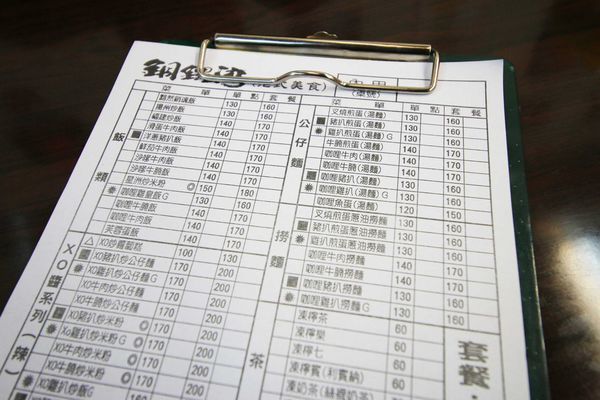 銅鑼灣(港式美食)
(桌號)
菜 單 單點 套餐
飯類
揚州炒飯 130 160
福建炒飯 140 170
滑蛋牛肉飯 140 170
洋蔥豬扒飯 130 160
鮮茄牛肉飯 140 170
沙嗲牛肉飯 140 170
沙嗲牛腩飯 140 170
星州炒米粉 ◎ 150 180
咖哩牛腩飯 140 170
咖哩牛肉飯 140 170
芙蓉蛋飯
XO醬系列(辣)
△ XO炒蘿蔔糕 100
XO豬扒炒公仔麵 170 200
XO雞扒炒公仔麵G 170 200
XO牛肉炒公仔麵 170 200
XO牛腩炒公仔麵 170 200
XO豬扒炒米粉 ◎ 170 200
XO雞扒炒米粉G ◎ 170 200
XO牛肉炒米粉 ◎ 170 200
XO牛腩炒米粉 ◎ 170 200
XO雞扒炒飯G
菜 單 單點 套餐
公仔麵
叉燒煎蛋(湯麵) 130 160
豬扒煎蛋(湯麵) 130 160
雞扒煎蛋(湯麵)G 130 160
牛腩煎蛋(湯麵) 140 170
咖哩牛肉(湯麵) 140 170
咖哩牛腩(湯麵) 140 170
咖哩豬扒(湯麵) 130 160
咖哩雞扒(湯麵)G 130 160
咖哩魚蛋(湯麵)
撈麵
叉燒煎蛋蔥油撈麵 130 160
豬扒煎蛋蔥油撈麵 130 160
雞扒煎蛋蔥油撈麵G 130 160
咖哩牛肉撈麵 140 170
咖哩牛腩撈麵 140 170
咖哩豬扒撈麵 130 160
咖哩雞扒撈麵G 130 160
茶
凍檸茶 60
凍檸樂 60
凍檸七 60
凍檸賓(利賓納) 60
凍奶茶(絲襪奶茶) 60
套餐